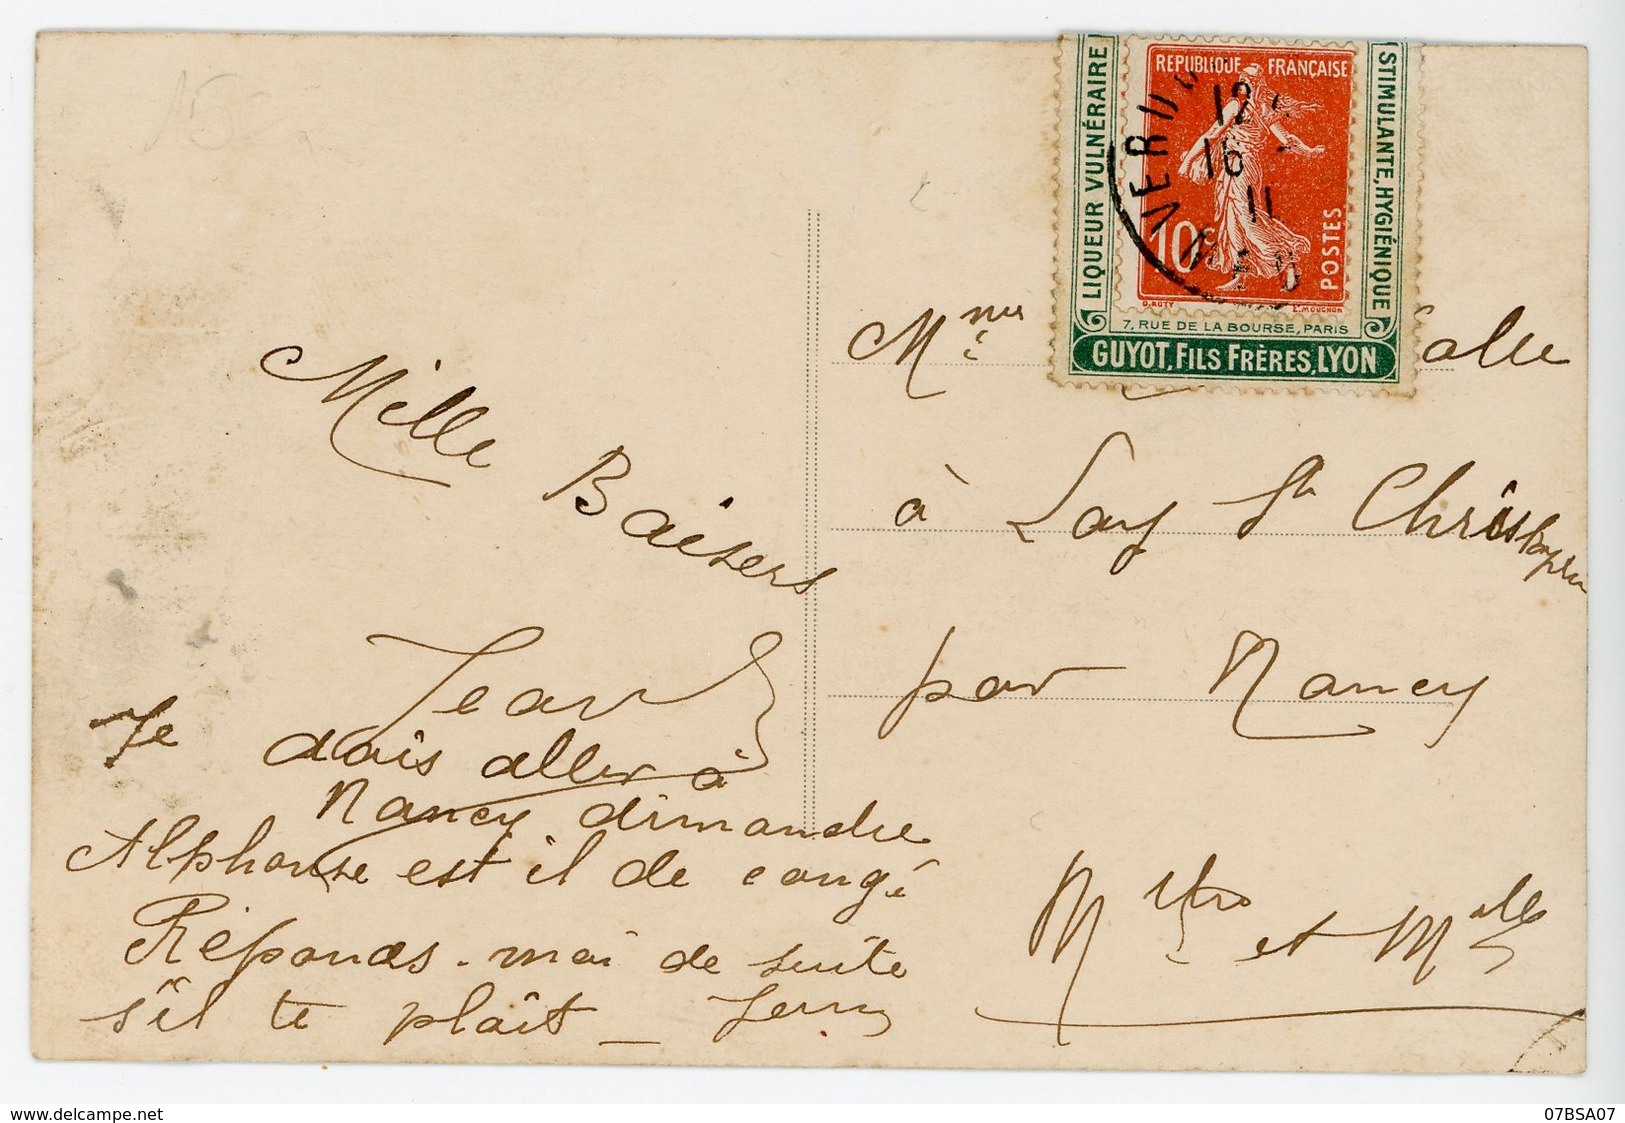 Mille Baisers
Jean
Je dois aller à
Nancy dimandre
Alphonse est il de congé
Réponds-moi de suite
s'il te plaît _ Jean
LIQUEUR VULNÉRAIRE
REPUBLIQUE FRANÇAISE
STIMULANTE, HYGIÉNIQUE
VERDUN
12
16
11
MEUSE
10c
POSTES
O. ROTY
E. MOUCHON
7, RUE DE LA BOURSE, PARIS
GUYOT, FILS FRÈRES, LYON
à Lay St Christophe
par Nancy
et Mlle
www.delcampe.net
07BSA07